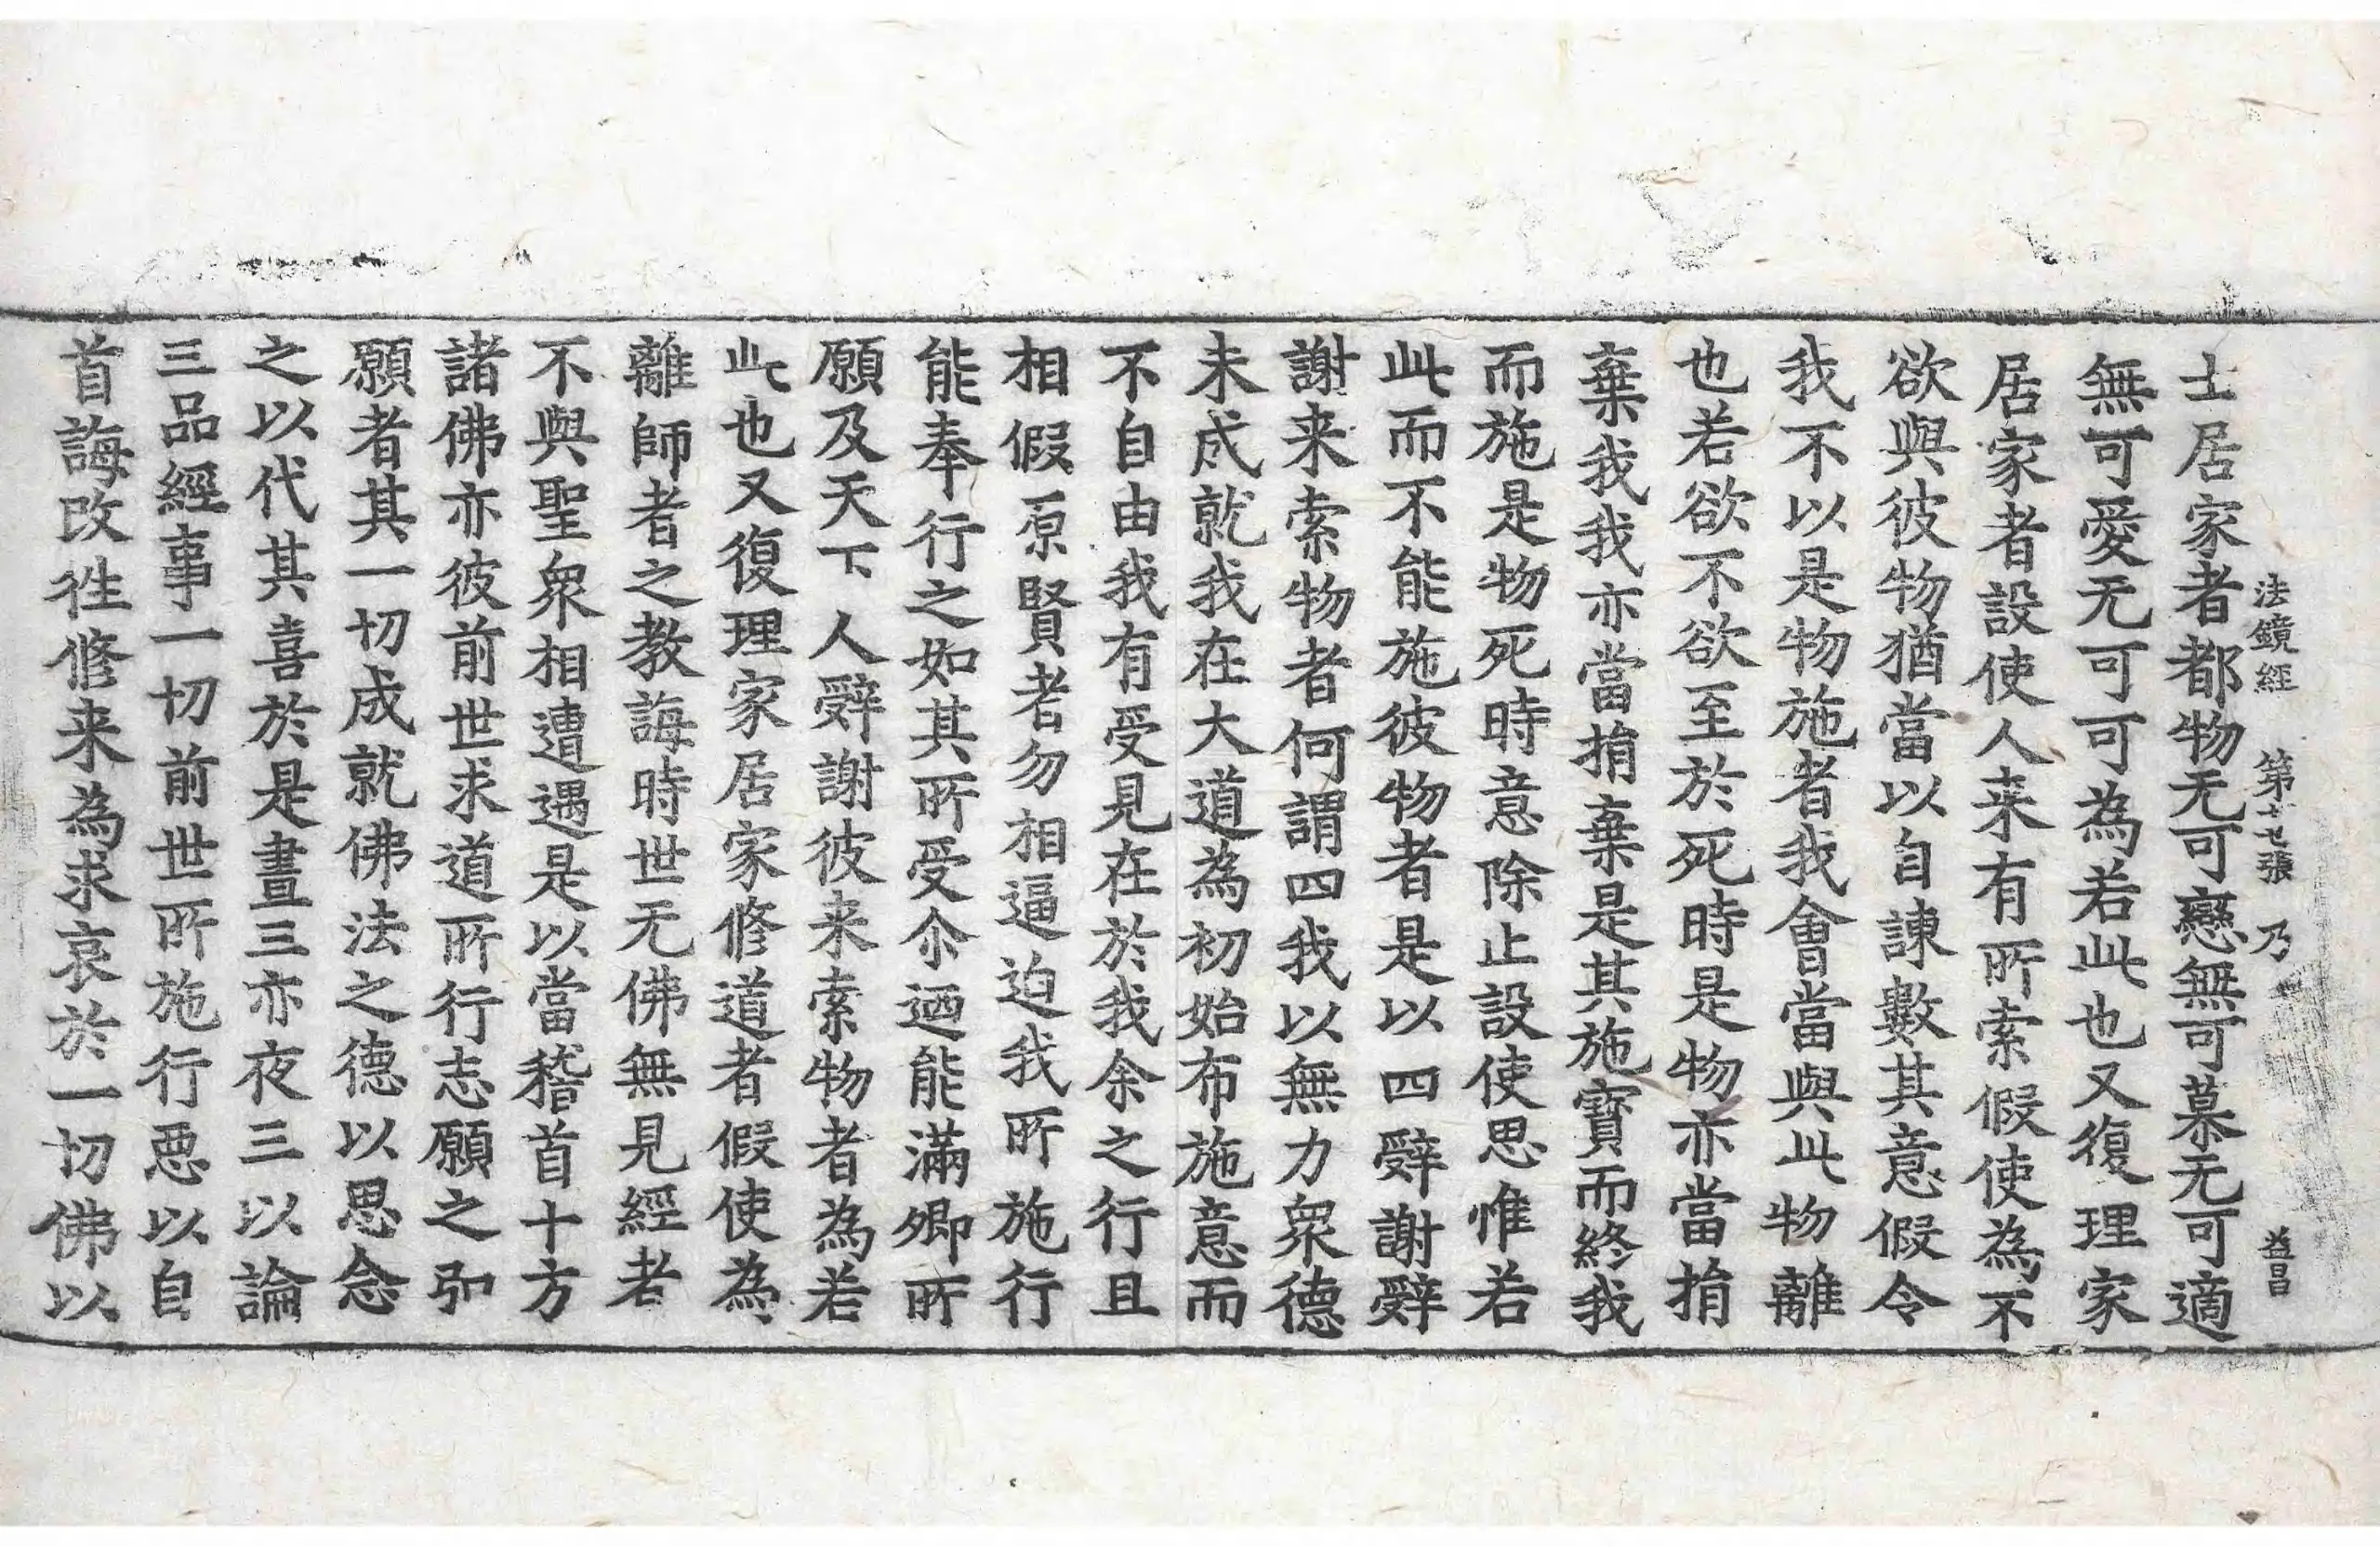 法鏡經　第十七張　乃　益昌
士居家者都物无可戀無可慕无可適
無可愛无可可為若此也又復理家
居家者設使人来有所索假使為不
欲與彼物猶當以自諫數其意假令
我不以是物施者我會當與此物離
也若欲不欲至於死時是物亦當捐
棄我我亦當捐棄是其施寶而終我
而施是物死時意除止設使思惟若
此而不能施彼物者是以四辭謝辭
謝来索物者何謂四我以無力眾德
未成就我在大道為初始布施意而
不自由我有受見在於我余之行且
相假原賢者勿相逼迫我所施行
能奉行之如其所受尒迺能滿卿所
願及天下人辭謝彼来索物者為若
此也又復理家居家修道者假使為
離師者之教誨時世无佛無見經者
不與聖眾相遭遇是以當稽首十方
諸佛亦彼前世求道所行志願之弘
願者其一切成就佛法之德以思念
之以代其喜於是晝三亦夜三以論
三品經事一切前世所施行惡以自
首誨改徃修来為求哀於一切佛以